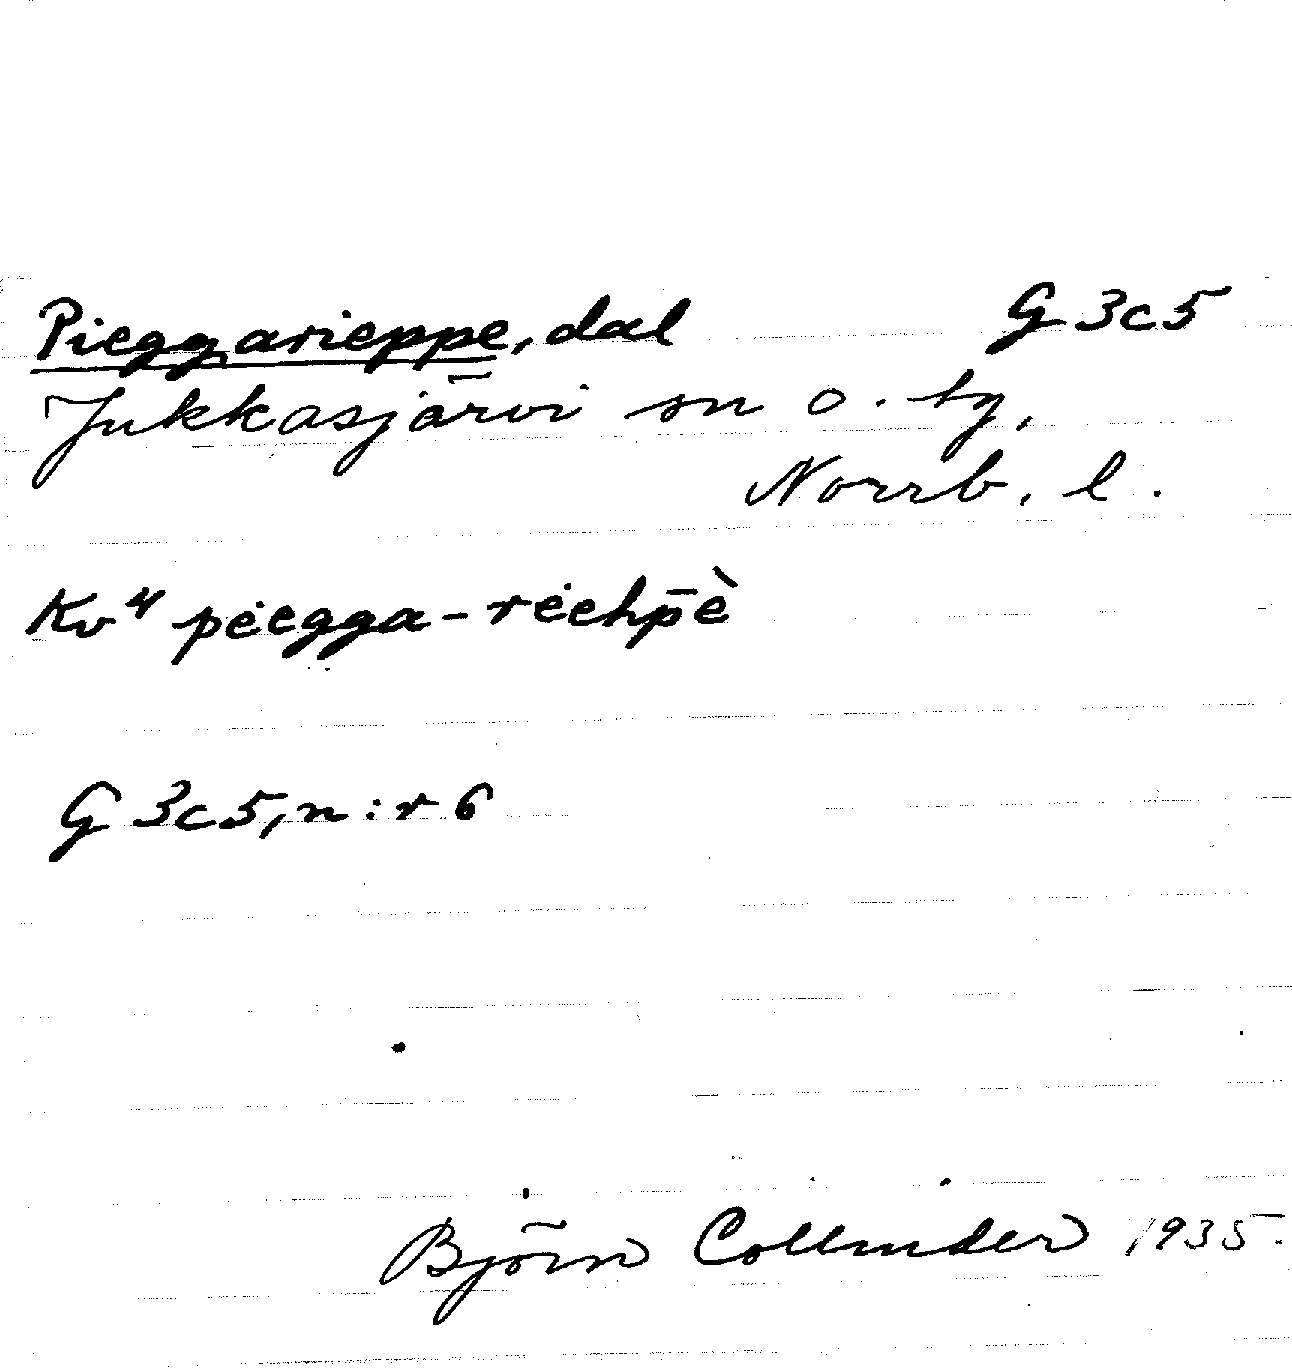 Pieggarieppe, dal G 3c5
Jukkasjärvi sn o. tg,
Norrb. l.
Kv⁴ pėegga-rėehp̄è
G 3c5, n:r 6
Björn Collinder 1935.